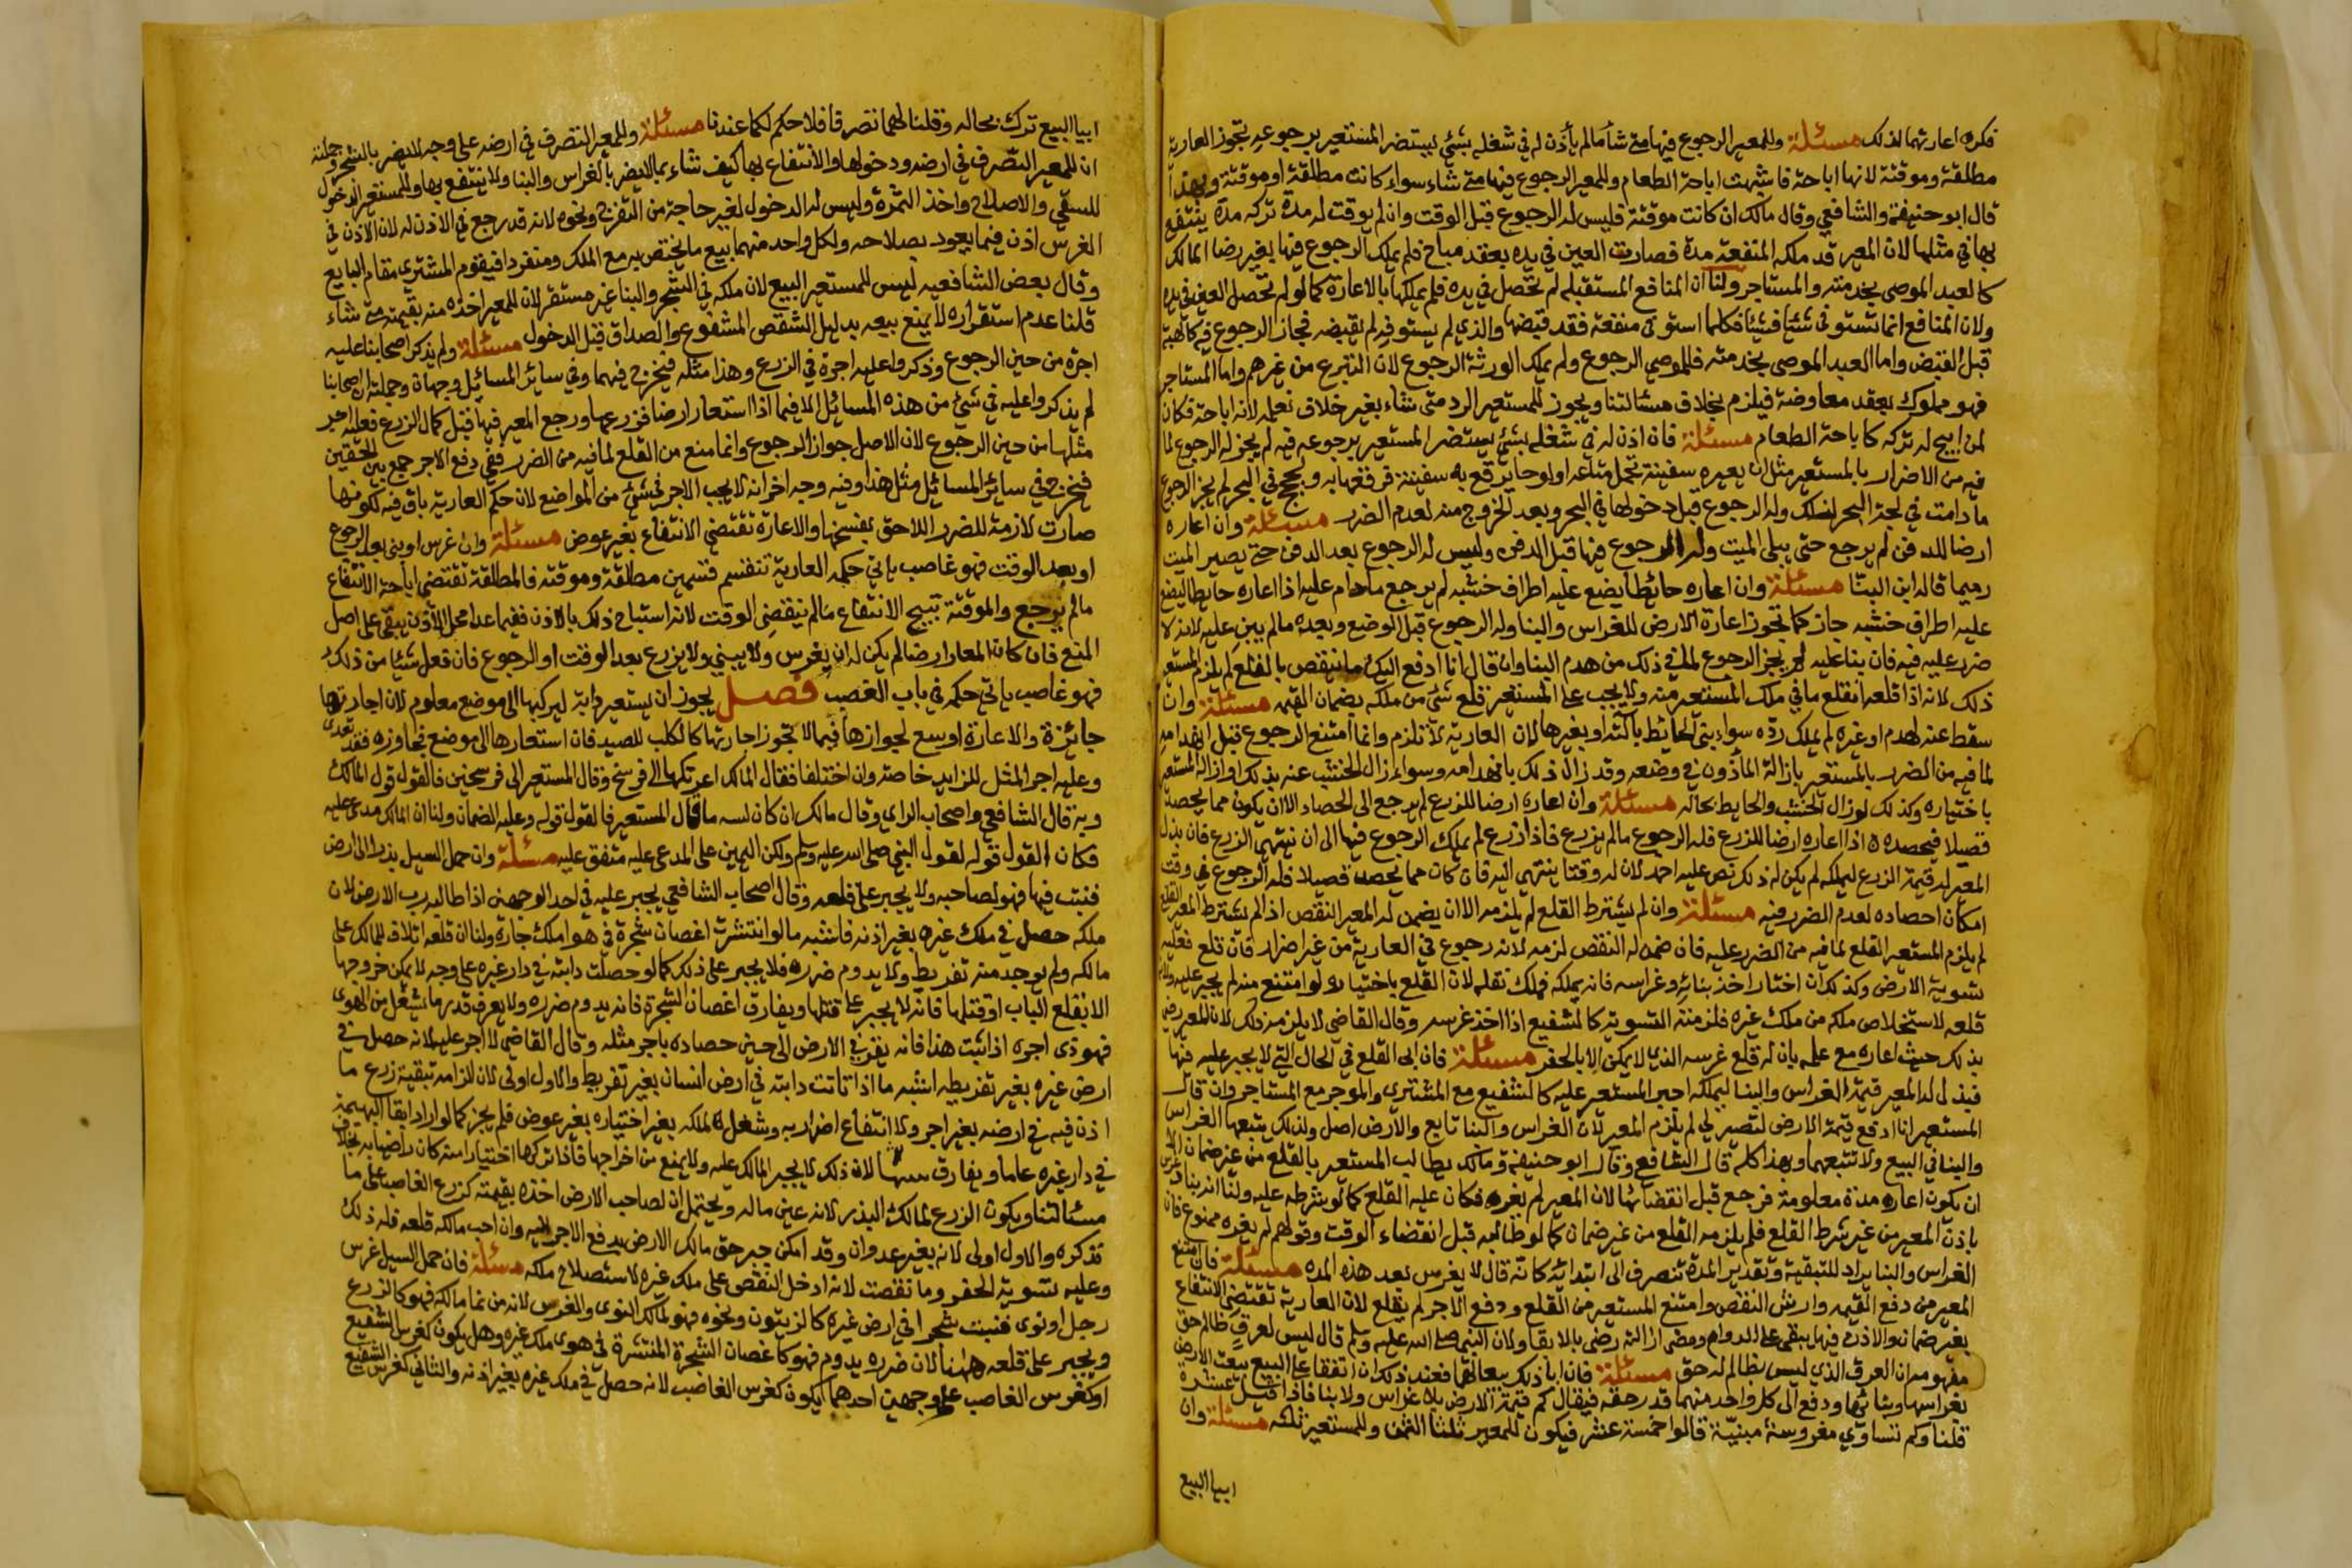 فكره اعارتها لذلك مسئلة وللمعير الرجوع فيها متى شاء ما لم يأذن له في شغله بشئ يستضر المستعير برجوعه تجوز العارية
مطلقة وموقتة لانها اباحة فاشبهت اباحة الطعام وللمعير الرجوع فيها متى شاء سواء كانت مطلقة او موقتة وبهذا
قال ابو حنيفة والشافعي وقال مالك ان كانت موقتة فليس له الرجوع قبل الوقت وان لم يوقت له مدة تركه مدة ينتفع
بها في مثلها لان المعير قد ملكه المنفعة مدة فصارت العين في يده بعقد مباح فلم يملك الرجوع فيها بغير رضا المالك
كالعبد الموصى بخدمته والمستاجر ولنا ان المنافع المستقبله لم تحصل في يده فلم يملكها بالاعارة كما لو لم تحصل العين في يده
ولان المنافع انما تستوفى شئيا فشئيا فكلما استوفى منفعة فقد قبضها والذي لم يستوفه لم يقبضه فجاز الرجوع فيه كالهبة
قبل القبض واما العبد الموصى بخدمته فللموصي الرجوع ولم يملك الورثة الرجوع لان التبرع من غيرهم واما المستاجر
فهو مملوك بعقد معاوضة فيلزم بخلاف مسئالتنا ويجوز للمستعير الرد متى شاء بغير خلاف نعلمه لانه اباحة فكان
لمن ابيح له تركه كاباحة الطعام مسئلة فان اذن له في شغله بشئ يستضر المستعير برجوعه فيه لم يجز له الرجوع لما
فيه من الاضرار بالمستعير مثل ان يعيره سفينة تحمل متاعه او لوحا يرقع به سفينته فرقعها به ولجج في البحر لم يجز الرجوع
ما دامت في لجة البحر لذلك وله الرجوع قبل دخولها في البحر وبعد الخروج منه لعدم الضرر مسئلة وان اعاره
ارضا للدفن لم يرجع حتى يبلى الميت وله الرجوع فيها قبل الدفن وليس له الرجوع بعد الدفن حتى يصير الميت
رميما قاله ابن البنا مسئلة وان اعاره حائطا يضع عليه اطراف خشبه لم يرجع ما دام عليه اذا اعاره حايطا ليضع
عليه اطراف خشبه جاز كما تجوز اعارة الارض للغراس والبنا وله الرجوع قبل الوضع وبعده ما لم يبن عليه لانه لا
ضرر عليه فيه فان بنا عليه لم يجز الرجوع لما في ذلك من هدم البنا وان قال انا ادفع اليك ما ينقص بالقلع لم يلزم المستعير
ذلك لانه اذا قلعه انقلع ما في ملك المستعير منه ولا يجب على المستعير قلع شئ من ملكه بضمان القيمه مسئلة وان
سقط عنه لهدم او غيره لم يملك رده سواء بنى الحائط بآلته او بغيرها لان العارية لا تلزم وانما امتنع الرجوع قبل انهدامه
لما فيه من الضرر بالمستعير بازالة المأذون في وضعه وقد زال ذلك بانهدامه وسواء زال الخشب عنه بذلك او ازاله المستعير
باختياره وكذلك لو زال الخشب والحايط بحاله مسئلة وان اعاره ارضا للزرع لم يرجع الى الحصاد الا ان يكون مما يحصد
قصيلا فيحصده اذا اعاره ارضا للزرع فله الرجوع ما لم يزرع فاذا زرع لم يملك الرجوع فيها الى ان ينتهي الزرع فان بذل
المعير له قيمة الزرع ليملكه لم يكن له ذلك نص عليه احمد لان له وقتا ينتهي اليه فان كان مما يحصد قصيلا فله الرجوع في وقت
امكان احصاده لعدم الضرر فيه مسئلة وان لم يشترط القلع لم يلزمه الا ان يضمن له المعير النقص اذا لم يشترط المعير القلع
لم يلزم المستعير القلع لما فيه من الضرر عليه فان ضمن له النقص لزمه لانه رجوع في العارية من غير اضرار فان قلع فعليه
تسوية الارض وكذلك ان اختار اخذ بنائه وغراسه فانه يملكه فملك نقله لان القلع باختياره لو امتنع منه لم يجبر عليه ولان
قلعه لاستخلاص ملكه من ملك غيره فلزمته التسوية كالشفيع اذا اخذ غرسه وقال القاضي لا يلزمه ذلك لان المعير رضي
بذلك حيث اعاره مع علمه بان له قلع غرسه الذي لا يمكن الا بالحفر مسئلة فان ابى القلع في الحال التي لا يجبر عليه فيها
فبذل له المعير قيمة الغراس والبنا ليملكه اجبر المستعير عليه كالشفيع مع المشتري والموجر مع المستاجر وان قال
المستعير انا ادفع قيمة الارض لتصير لي لم يلزم المعير لان الغراس والبنا تابع والارض اصل ولذلك يتبعها الغراس
والبنا في البيع ولا تتبعهما وبهذا كله قال الشافعي وقال ابو حنيفة ومالك يطالب المستعير بالقلع من غير ضمان الا
ان يكون اعاره مدة معلومة فرجع قبل انقضائها لان المعير لم يغره فكان عليه القلع كما لو شرطه عليه ولنا انه بنا وغرس
باذن المعير من غير شرط القلع فلم يلزمه القلع من غير ضمان كما لو طالبه قبل انقضاء الوقت وقولهم لم يغره ممنوع فان
الغراس والبنا يراد للتبقية وتقدير المدة ينصرف الى ابتدائه كانه قال لا يغرس بعد هذه المده مسئلة فان امتنع
المعير من دفع القيمه وارش النقص وامتنع المستعير من القلع ودفع الاجر لم يقلع لان العارية تقتضي الانتفاع
بغير ضمان والاذن فيما يبقى على الدوام ومضر ازالته رضى بالابقا ولان النبي صلى الله عليه وسلم قال ليس لعرق ظالم حق
مفهومه ان العرق الذي ليس بظالم له حق مسئلة فان ابا ذلك بيعا لهما فعند ذلك ان اتفقا على البيع بيعت الارض
بغراسها وبنائها ودفع الى كل واحد منهما قدر حقه فيقال كم قيمة الارض بلا غراس ولا بنا فاذا قيل عشرة
قلنا وكم تساوي مغروسة مبنية قالوا خمسة عشر فيكون للمعير ثلثا الثمن وللمستعير ثلثه مسئلة وان
ابيا البيع
ابيا البيع ترك بحاله وقلنا لهما انصرفا فلا حكم لكما عندنا مسئلة وللمعير التصرف في ارضه على وجه لا يضر بالشجر وجملته
ان للمعير التصرف في ارضه ودخولها والانتفاع بها كيف شاء بما لا يضر بالغراس والبنا ولا ينتفع بها وللمستعير الدخول
للسقي والاصلاح واخذ الثمرة وليس له الدخول لغير حاجة من التفرج ونحوه لانه قد رجع في الاذن له لان الاذن في
الغرس اذن فيما يعود بصلاحه ولكل واحد منهما بيع ما يختص به مع الملك ومنفردا فيقوم المشتري مقام البايع
وقال بعض الشافعيه ليس للمستعير البيع لان ملكه في الشجر والبنا غير مستقر لان للمعير اخذه منه بقيمته متى شاء
قلنا عدم استقراره لا يمنع بيعه بدليل الشقص المشفوع والصداق قبل الدخول مسئلة ولم يذكر اصحابنا عليه
اجرة من حين الرجوع وذكروا عليه اجرة في الزرع وهذا مثله فيخرج فيهما وفي سائر المسائل وجهان وجملته ان اصحابنا
لم يذكروا عليه في شئ من هذه المسائل الا فيما اذا استعار ارضا فزرعها ورجع المعير فيها قبل كمال الزرع فعليه اجر
مثلها من حين الرجوع لان الاصل جواز الرجوع وانما منع من القلع لما فيه من الضرر ففي دفع الاجر جمع بين الحقين
فيخرج في سائر المسائل مثل هذا وفيه وجه اخر انه لا يجب الاجر في شئ من المواضع لان حكم العارية باق فيه لكونها
صارت لازمة للضرر اللاحق بفسخها والاعارة تقتضي الانتفاع بغير عوض مسئلة وان غرس او بنى بعد الرجوع
او بعد الوقت فهو غاصب ياتي حكمه العارية تنقسم قسمين مطلقة وموقتة فالمطلقة تقتضي اباحة الانتفاع
ما لم يرجع والموقتة تبيح الانتفاع ما لم ينقضي الوقت لانه استباح ذلك بالاذن ففيما عدا محل الاذن يبقى على اصل
المنع فان كان المعار ارضا لم يكن له ان يغرس ولا يبني ولا يزرع بعد الوقت او الرجوع فان فعل شئيا من ذلك
فهو غاصب ياتي حكمه في باب الغصب فصل يجوز ان يستعير دابة ليركبها الى موضع معلوم لان اجارتها
جائزة والاعارة اوسع لجوازها فيما لا تجوز اجارتها كالكلب للصيد فان استعارها الى موضع فجاوزه فقد تعدى
وعليه اجر المثل للزايد خاصة وان اختلفا فقال المالك اعرتكها الى فرسخ وقال المستعير الى فرسخين فالقول قول المالك
وبه قال الشافعي واصحاب الراي وقال مالك ان كان يشبه ما قال المستعير فالقول قوله وعليه الضمان ولنا ان المالك مدعى عليه
فكان القول قوله لقول النبي صلى الله عليه وسلم ولكن اليمين على المدعى عليه متفق عليه مسئلة وان حمل السيل بذرا الى ارض
فنبت فيها فهو لصاحبه ولا يجبر على قلعه وقال اصحاب الشافعي يجبر عليه في احد الوجهين اذا طالبه رب الارض لان
ملكه حصل في ملك غيره بغير اذنه فاشبه ما لو انتشرت اغصان شجرة في هوا ملك جاره ولنا ان قلعه اتلاف للمالك على
مالكه ولم يوجد منه تفريط ولا يدوم ضرره فلا يجبر على ذلك كما لو حصلت دابته في دار غيره على وجه لا يمكن خروجها
الا بقلع الباب او قتلها فانه لا يجبر على قتلها ويفارق اغصان الشجرة فانه يدوم ضرره ولا يعرف قدر ما يشغل من الهوى
فهو ذى اجره اذا ثبت هذا فانه يقر في الارض الى حين حصاده باجر مثله وقال القاضي لا اجر عليه لانه حصل في
ارض غيره بغير تفريطه اشبه ما اذا باتت دابته في ارض انسان بغير تفريط والاول اولى لان الزامه تبقية زرع ما
اذن فيه في ارضه بغير اجر ولا انتفاع اضرار به وشغل لملكه بغير اختياره بغير عوض فلم يجز كما لو اراد ابقا البهيمة
في دار غيره عاما ويفارق مبيتها لان ذلك لا يجبر المالك عليه ولا يمنع من اخراجها فاذا تركها اختيارا منه كان راضيا به بخلاف
مسئالتنا ويكون الزرع لمالك البذر لانه عين ماله ويحتمل ان لصاحب الارض اخذه بقيمته كزرع الغاصب على ما
نذكره والاول اولى لانه بغير عدوان وقد امكن جبر حق مالك الارض بدفع الاجر اليه وان احب مالكه قلعه فله ذلك
وعليه تسوية الحفر وما نقصت لانه ادخل النقص على ملك غيره لاستصلاح ملكه مسئلة فان حمل السيل غرس
رجل او نوى فنبت شجرا في ارض غيره كالزيتون ونحوه فهو لمالك النوى والغرس لانه من نما ماله فهو كالزرع
ويجبر على قلعه هاهنا لان ضرره يدوم فهو كاغصان الشجرة المنتشرة في هوى ملك غيره وهل يكون كغرس الشفيع
او كغرس الغاصب على وجهين احدهما يكون كغرس الغاصب لانه حصل في ملك غيره بغير اذنه والثاني كغرس الشفيع